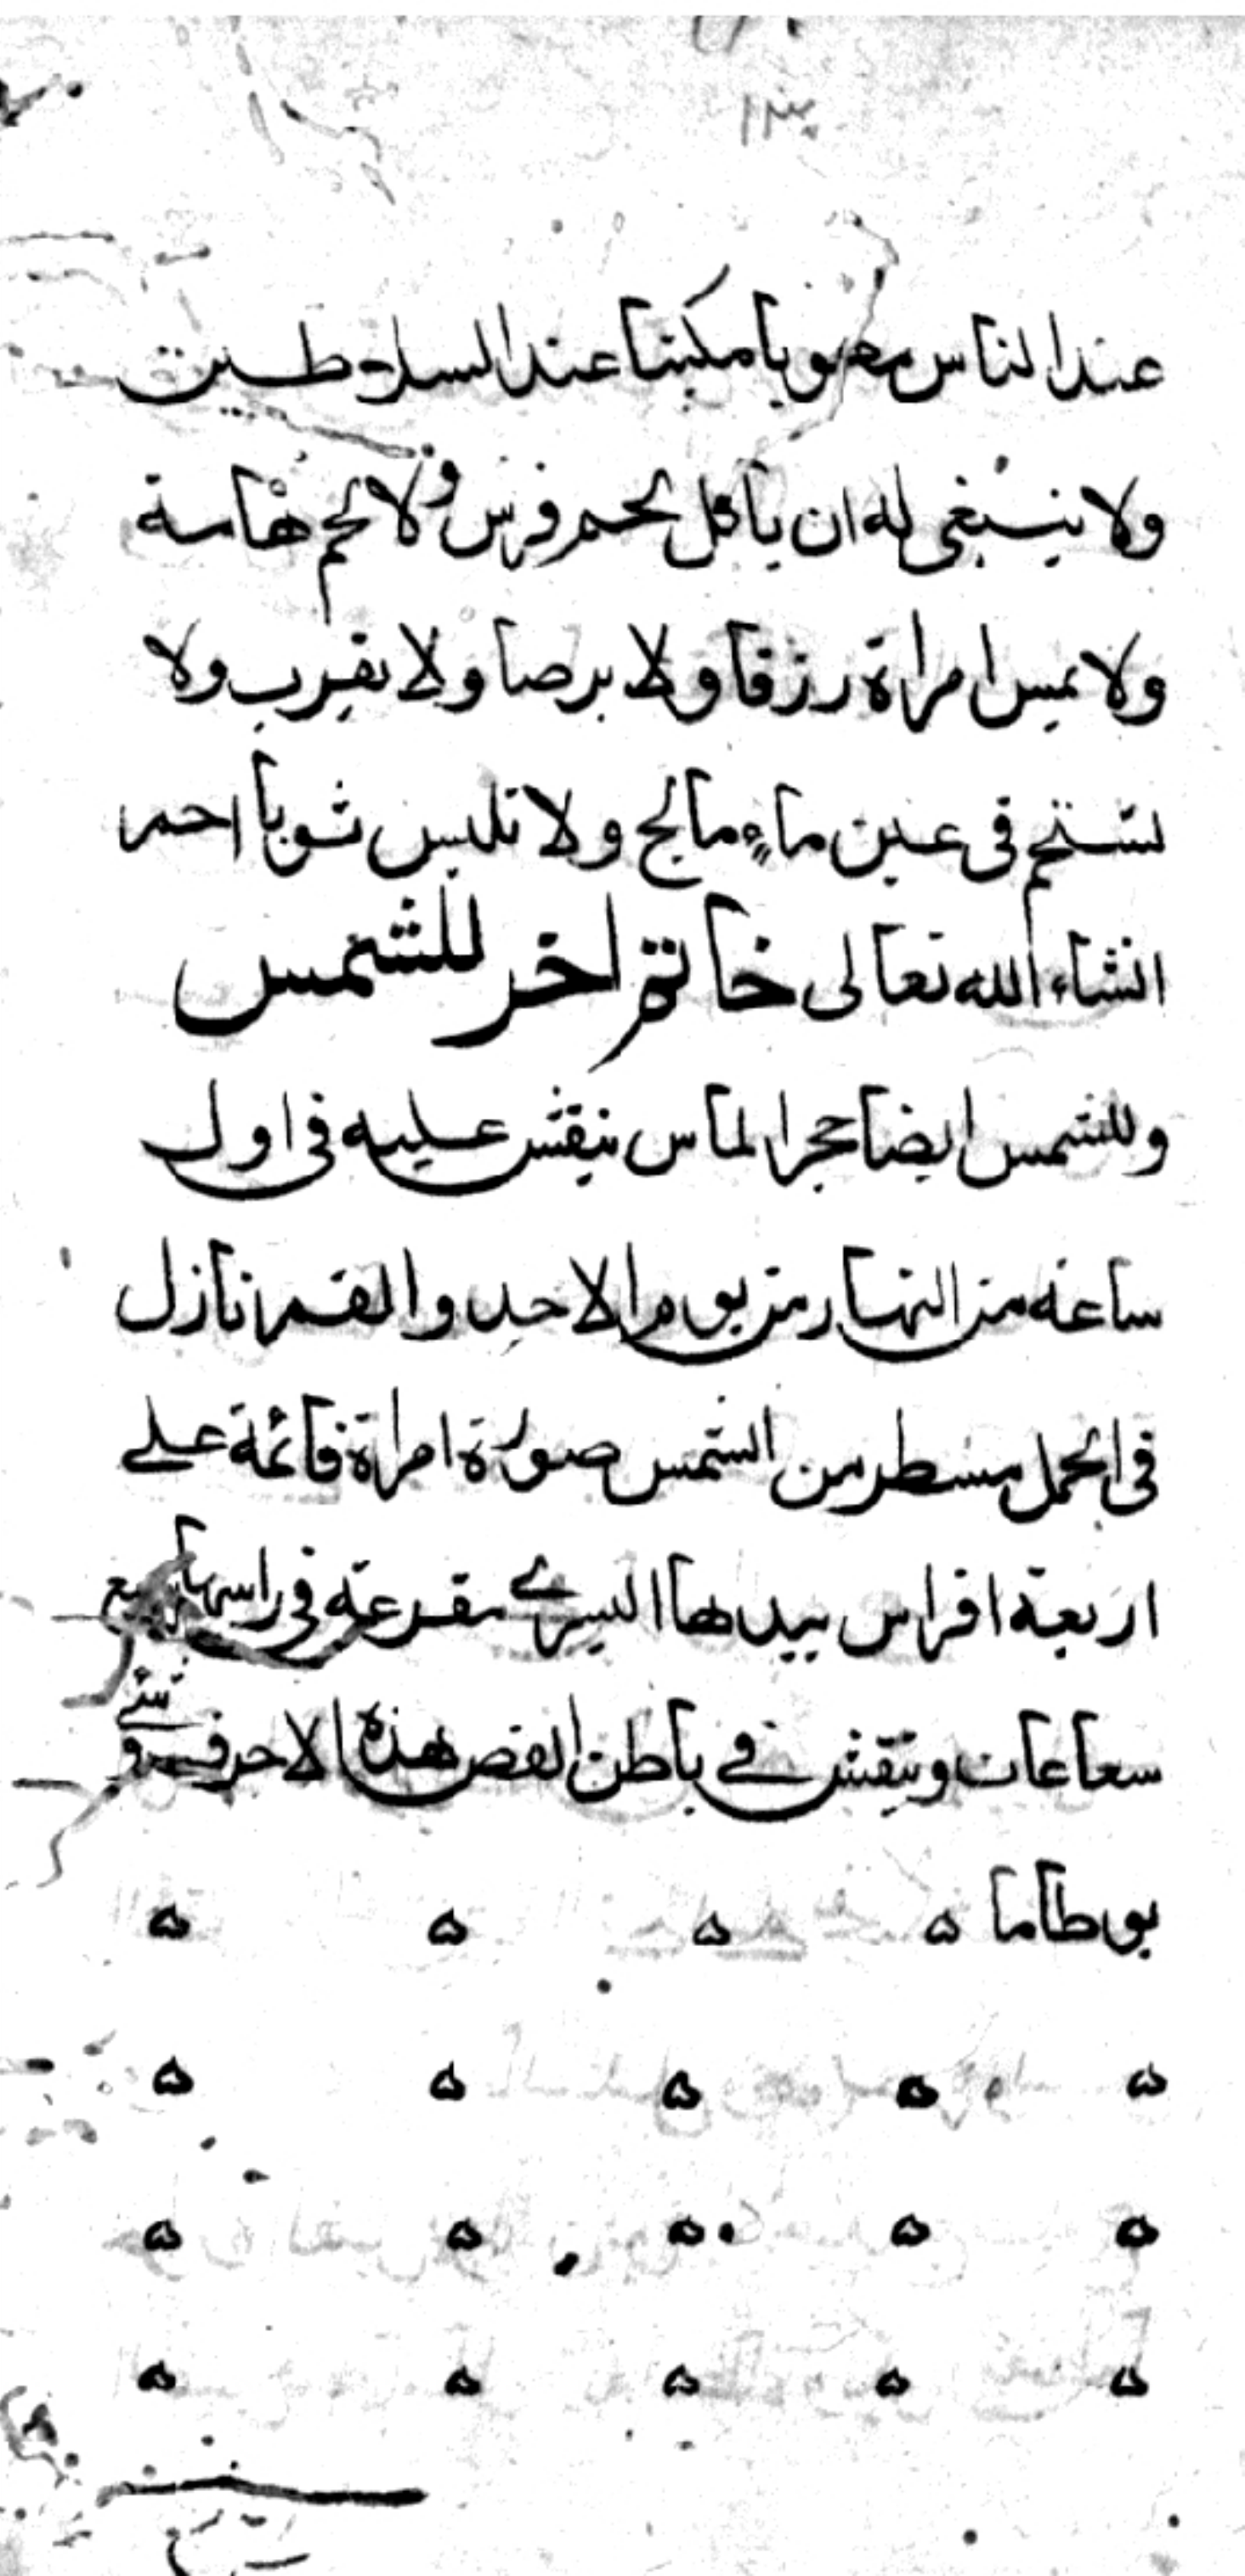 عند الناس محبوبا مكينا عند السلاطين
ولا ينبغى له ان ياكل لحم فرس ولا لحم هامة
ولا يمس امراة رزقا ولا برصا ولا يقرب ولا
يستحم فى عين ماء مالح ولا تلبس ثوبا احمر
انشاء الله تعالى خاتم اخر للشمس
وللشمس ايضا حجر الماس ينقش عليه فى اول
ساعة من النهار من يوم الاحد والقمر نازل
فى الحمل مسطر من الشمس صورة امراة قائمة على
اربعة افراس بيدها اليسرى مقرعة فى راسها
سعاعات وينقش فى باطن الفص هذه الاحرف
بوطاما ه ه ه ه
ه ه ه ه ه
ه ه ه ه ه
ه ه ه ه ه